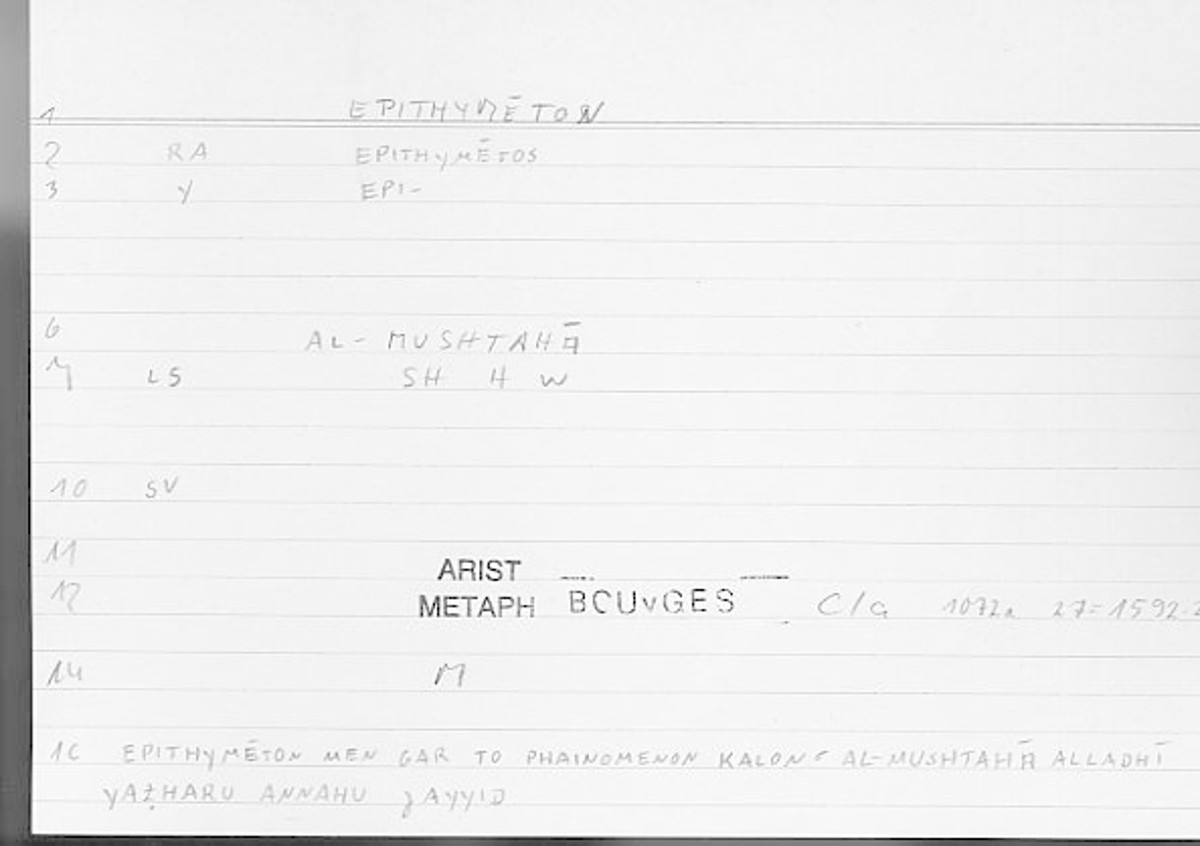 1 EPITHYMĒTON
2 RA EPITHYMĒTOS
3 Y EPI-
6 AL-MUSHTAHĀ
7 LS SH H W
10 SV
11 ARIST
12 METAPH BOUYGES C/a 1072a 27=1592.2
14 M
16 EPITHYMĒTON MEN GAR TO PHAINOMENON KALON = AL-MUSHTAHĀ ALLADHĪ
YAẒHARU ANNAHU JAYYID